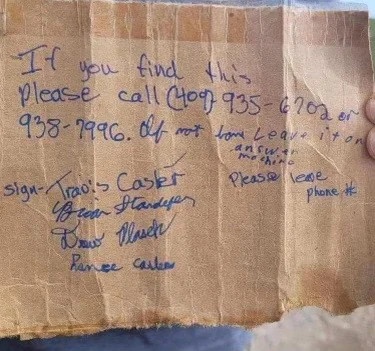 If you find this
please call (409) 935-6702 or
938-7996. If not home Leave it on
answer
machine
Please leave
phone #
sign- Travis Caster
Drew
Renee